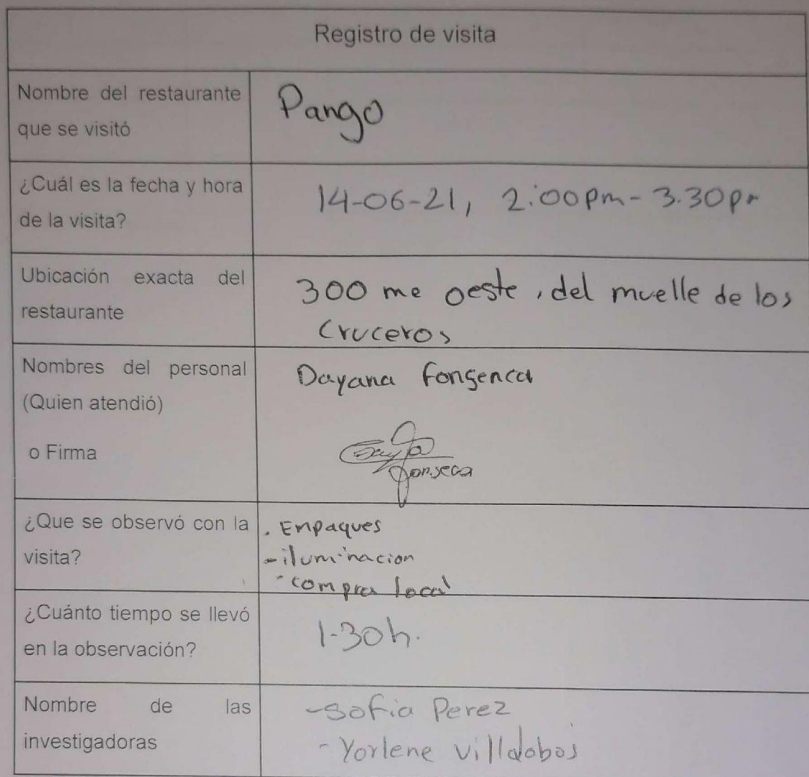 Registro de visita
Nombre del restaurante
que se visitó
Pango
¿Cuál es la fecha y hora
de la visita?
14-06-21, 2:00pm - 3.30pm
Ubicación exacta del
restaurante
300 me oeste, del muelle de los
Cruceros
Nombres del personal
(Quien atendió)
o Firma
Dayana Fongenca
Fonseca
¿Que se observó con la
visita?
. Empaques
- iluminacion
- compra local
¿Cuánto tiempo se llevó
en la observación?
1-30h.
Nombre de las
investigadoras
- Sofia Perez
- Yorlene Villalobos